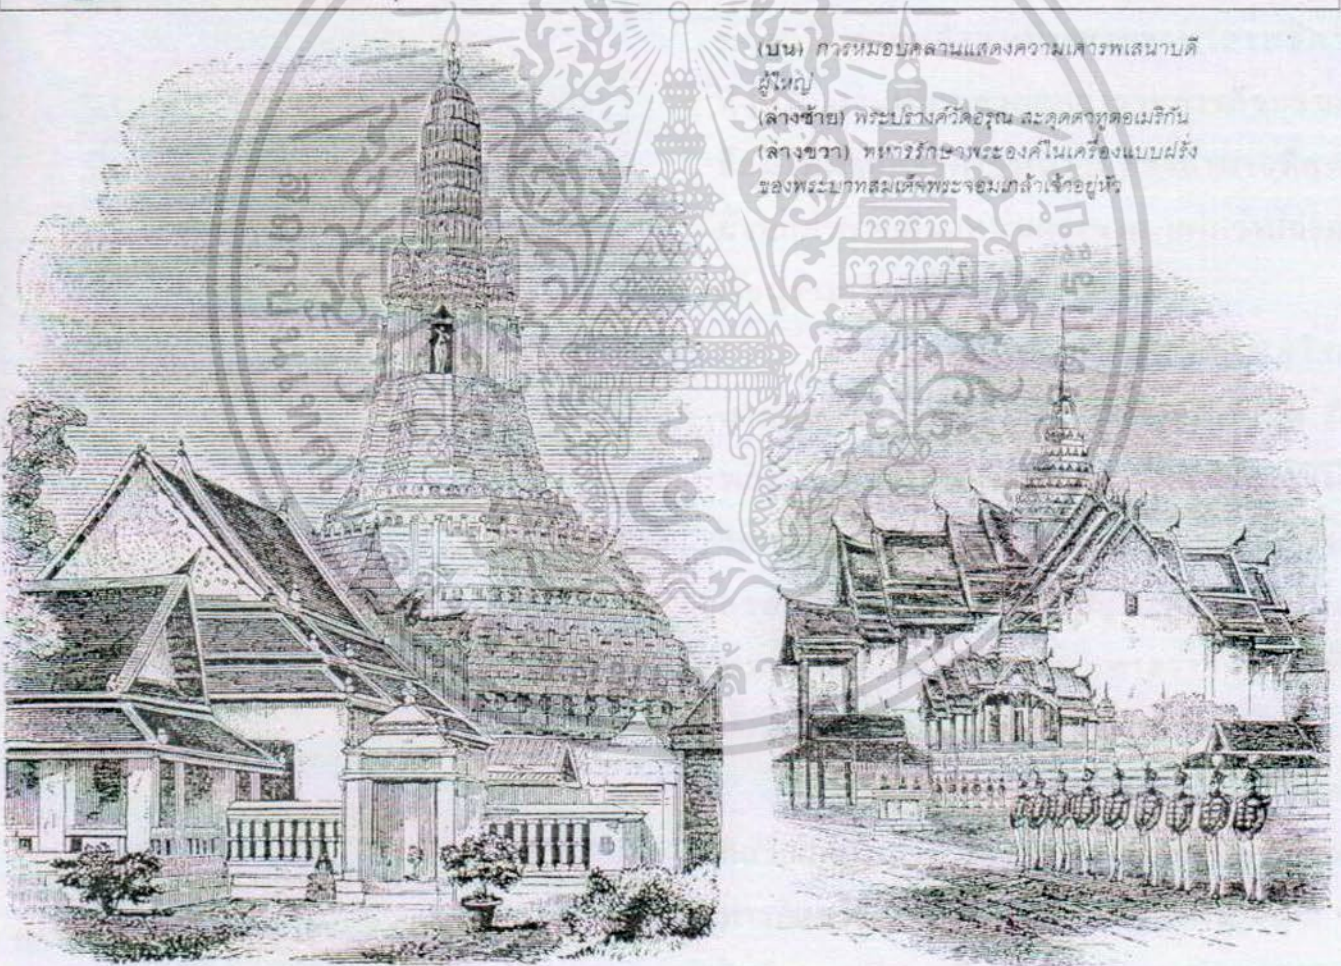 (บน) การหมอบคลานแสดงความเคารพเสนาบดี
ผู้ใหญ่
(ล่างซ้าย) พระปรางค์วัดอรุณ สะดุดตาทูตอเมริกัน
(ล่างขวา) ทหารรักษาพระองค์ในเครื่องแบบฝรั่ง
ของพระบาทสมเด็จพระจอมเกล้าเจ้าอยู่หัว